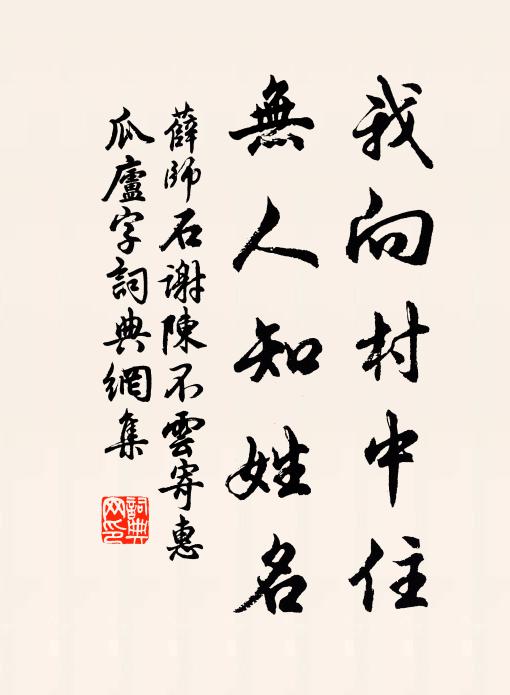 我向村中住
無人知姓名
薛師石謝陳不雲寄惠
瓜廬字詞典網集
詞典網印